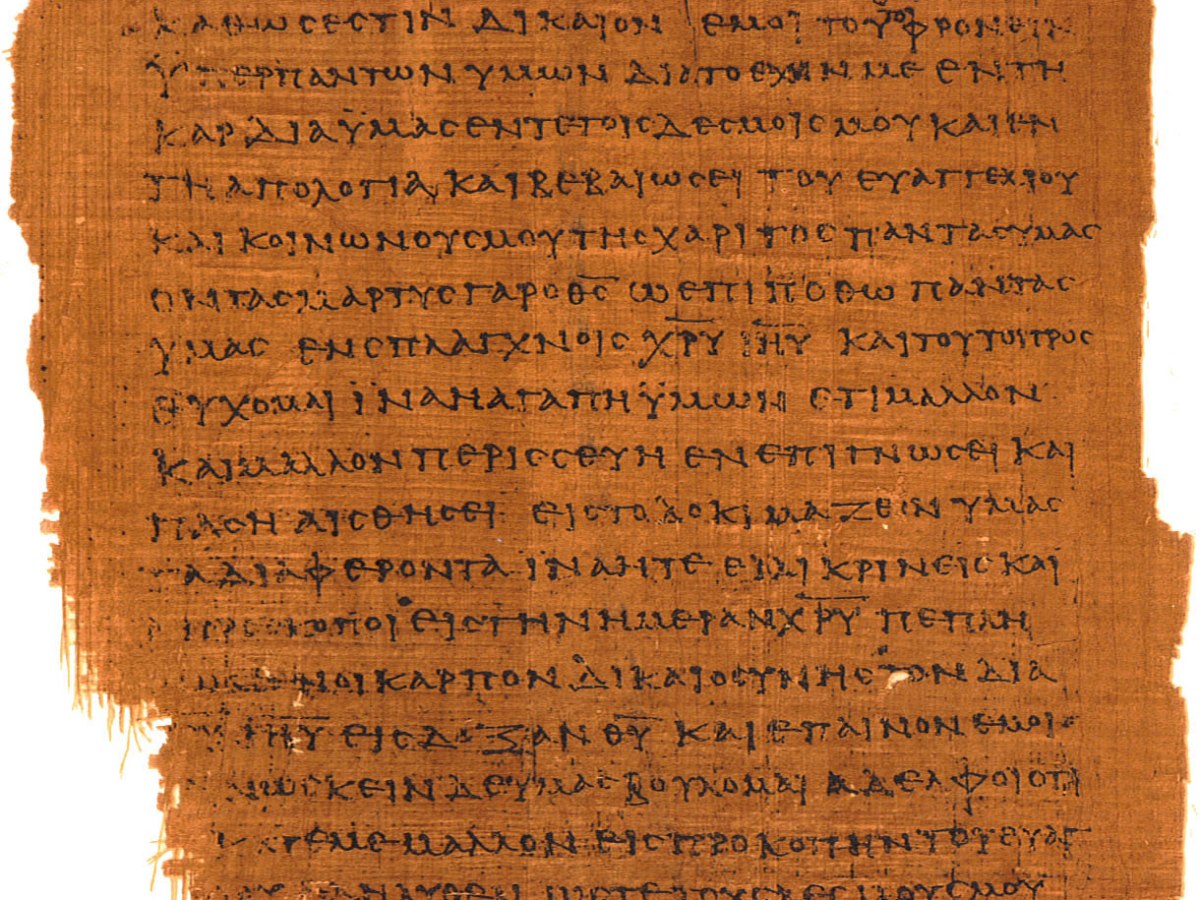 καθως εστιν δικαιον εμοι τουτο φρονειν
ϋπερ παντων υμων δια το εχειν με εν τη
καρδια ϋμας εν τε τοις δεσμοις μου και εν
τη απολογια και βεβαιωσει του ευαγγελιου
και κοινωνους μου της χαριτος παντας υμας
οντας μαρτυς γαρ ο θ̅ς̅ ως επιποθω παντας
υμας εν σπλαγχνοις χ̅ρ̅υ̅ ι̅η̅υ̅ και τουτο προς
ευχομαι ϊνα η αγαπη ϋμων ετι μαλλον
και μαλλον περισσευη εν επιγνωσει και
παση αισθησει εις το δοκιμαζειν υμας
τα διαφεροντα ϊνα ητε ειλικρινεις και
απροσκοποι εις την ημεραν χ̅ρ̅υ̅ πεπλη
ρωμενοι καρπον δικαιοσυνης τον δια
χ̅ρ̅υ̅ ι̅η̅υ̅ εις δοξαν θ̅υ̅ και επαινον εμοι
γινωσκειν δε υμας βουλομαι αδελφοι οτι
τα κατ εμε μαλλον εις προκοπην του ευαγ
τους δεσμους μου